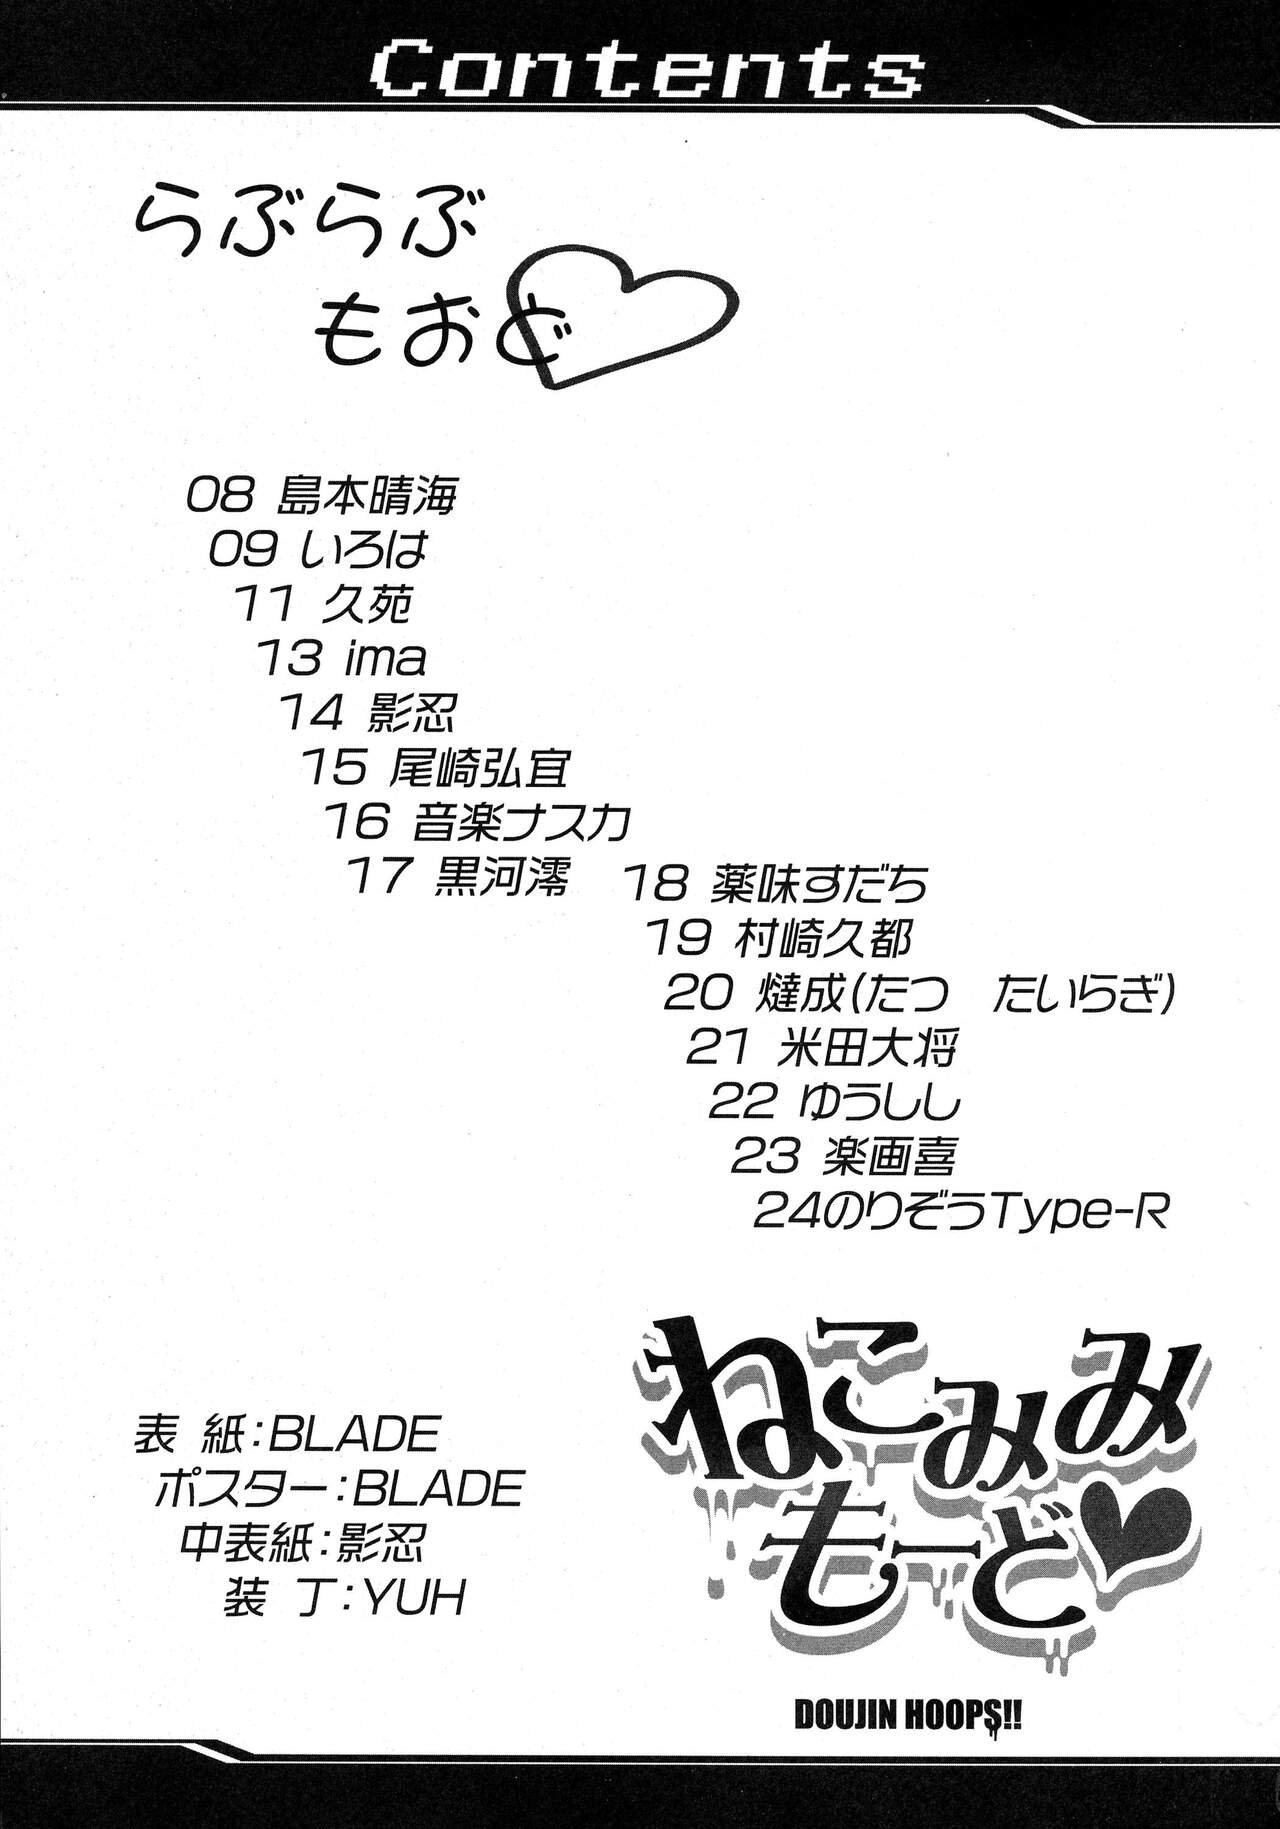 Contents
らぶらぶ
もおど
08 島本晴海
09 いろは
11 久苑
13 ima
14 影忍
15 尾崎弘宜
16 音楽ナスカ
17 黒河澪
18 薬味すだち
19 村崎久都
20 燵成(たつ　たいらぎ)
21 米田大将
22 ゆうしし
23 楽画喜
24のりぞうType-R
表 紙:BLADE
ポスター:BLADE
中表紙:影忍
装 丁:YUH
ねこみみ
もーど♥
DOUJIN HOOPS!!